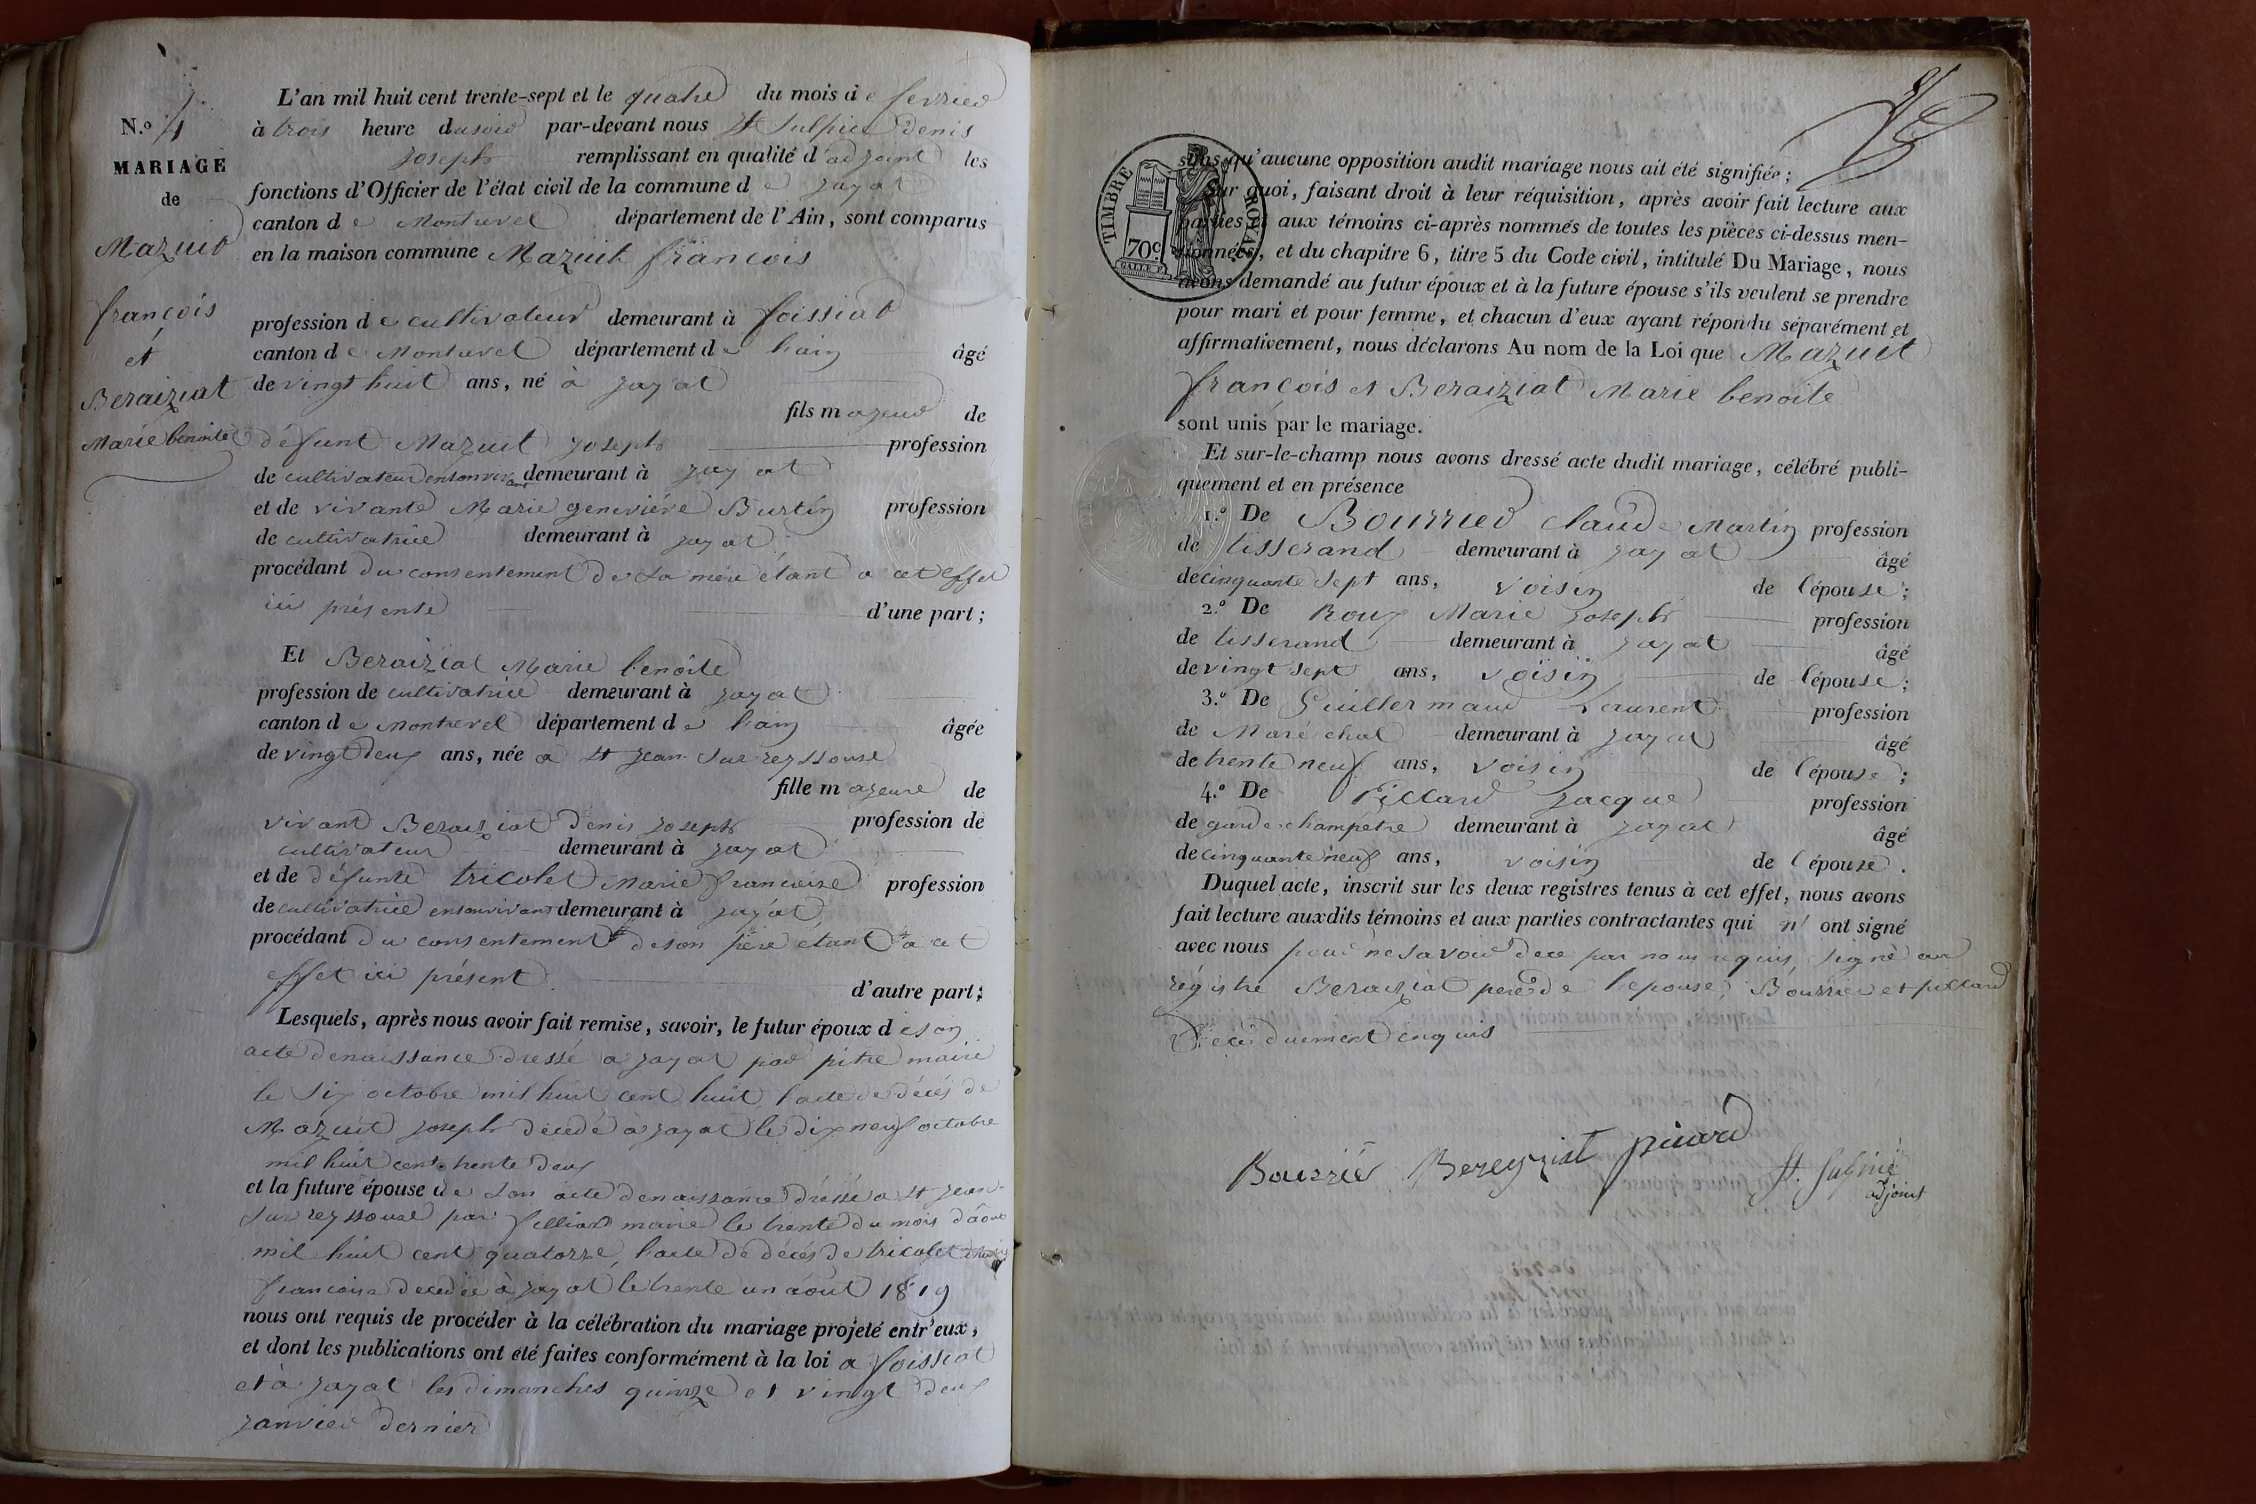 L'an mil huit cent trente-sept et le quatre du mois de fevrier
N.o 4
à trois heure du soir par-devant nous St Sulpice denis
joseph remplissant en qualité d'adjoint les
MARIAGE
fonctions d'Officier de l'état civil de la commune de jayat
de
canton de Montrevel département de l'Ain, sont comparus
Mazuit
en la maison commune Mazuit françois
françois
profession de cultivateur demeurant à foissiat
et
canton de Montrevel département de l'ain âgé
Beraiziat
de vingt huit ans, né à jayat
fils majeur de
Marie benoite
défunt Mazuit joseph profession
de cultivateur en son vivant demeurant à jayat
et de vivante Marie geneviéve Burtin profession
de cultivatrice demeurant à jayat
procédant du consentement de sa mére étant a cet effet
ici présente d'une part;
Et Beraiziat Marie benoite
profession de cultivatrice demeurant à jayat
canton de Montrevel département de l'ain âgée
de vingt deux ans, née a St jean sur reyssouse
fille majeure de
vivant Beraiziat denis joseph profession de
cultivateur demeurant à jayat
et de défunte tricolet Marie francoise profession
de cultivatrice en son vivant demeurant à jayat
procédant du consentement de son père étant a cet
effet ici présent d'autre part;
Lesquels, après nous avoir fait remise, savoir, le futur époux de son
acte de naissance dressé a jayat par pitre maire
le six octobre mil huit cent huit, l'acte de décés de
Mazuit joseph decedé à jayat le dix neuf octobre
mil huit cent trente deux
et la future épouse de son acte de naissance dressé a St jean
sur reyssouse par filliard maire le trente du mois d'aout
mil huit cent quatorze, l'acte de décés de tricolet marie
francoise decedée à jayat le trente un août 1819
nous ont requis de procéder à la célébration du mariage projeté entr'eux,
et dont les publications ont été faites conformément à la loi a foissiat
et à jayat les dimanches quinze et vingt deux
janvier dernier
TIMBRE ROYAL
70c.
GALLE F.
sans qu'aucune opposition audit mariage nous ait été signifiée;
Sur quoi, faisant droit à leur réquisition, après avoir fait lecture aux
parties et aux témoins ci-après nommés de toutes les pièces ci-dessus men-
tionnées, et du chapitre 6, titre 5 du Code civil, intitulé Du Mariage, nous
avons demandé au futur époux et à la future épouse s'ils veulent se prendre
pour mari et pour femme, et chacun d'eux ayant répondu séparément et
affirmativement, nous déclarons Au nom de la Loi que Mazuit
françois et Beraiziat Marie benoite
sont unis par le mariage.
Et sur-le-champ nous avons dressé acte dudit mariage, célébré publi-
quement et en présence
1.o De Bourrier claude Martin profession
de tisserand demeurant à jayat âgé
de cinquante sept ans, voisin de l'épouse;
2.o De Roux Marie joseph profession
de tisserand demeurant à jayat âgé
de vingt sept ans, voisin de l'épouse;
3.o De Guillermaud Laurent profession
de Maréchal demeurant à jayat âgé
de trente neuf ans, voisin de l'épouse;
4.o De Pillard jacque profession
de garde champetre demeurant à jayat âgé
de cinquante neuf ans, voisin de l'épouse.
Duquel acte, inscrit sur les deux registres tenus à cet effet, nous avons
fait lecture auxdits témoins et aux parties contractantes qui n'ont signé
avec nous pour ne savoir de ce par nous requis, signé au
régistre Beraiziat pere de l'epouse, Bourrier et pillard
de ce duement enquis
Bourrié Bereyziat pilard
St. Sulpice
adjoint